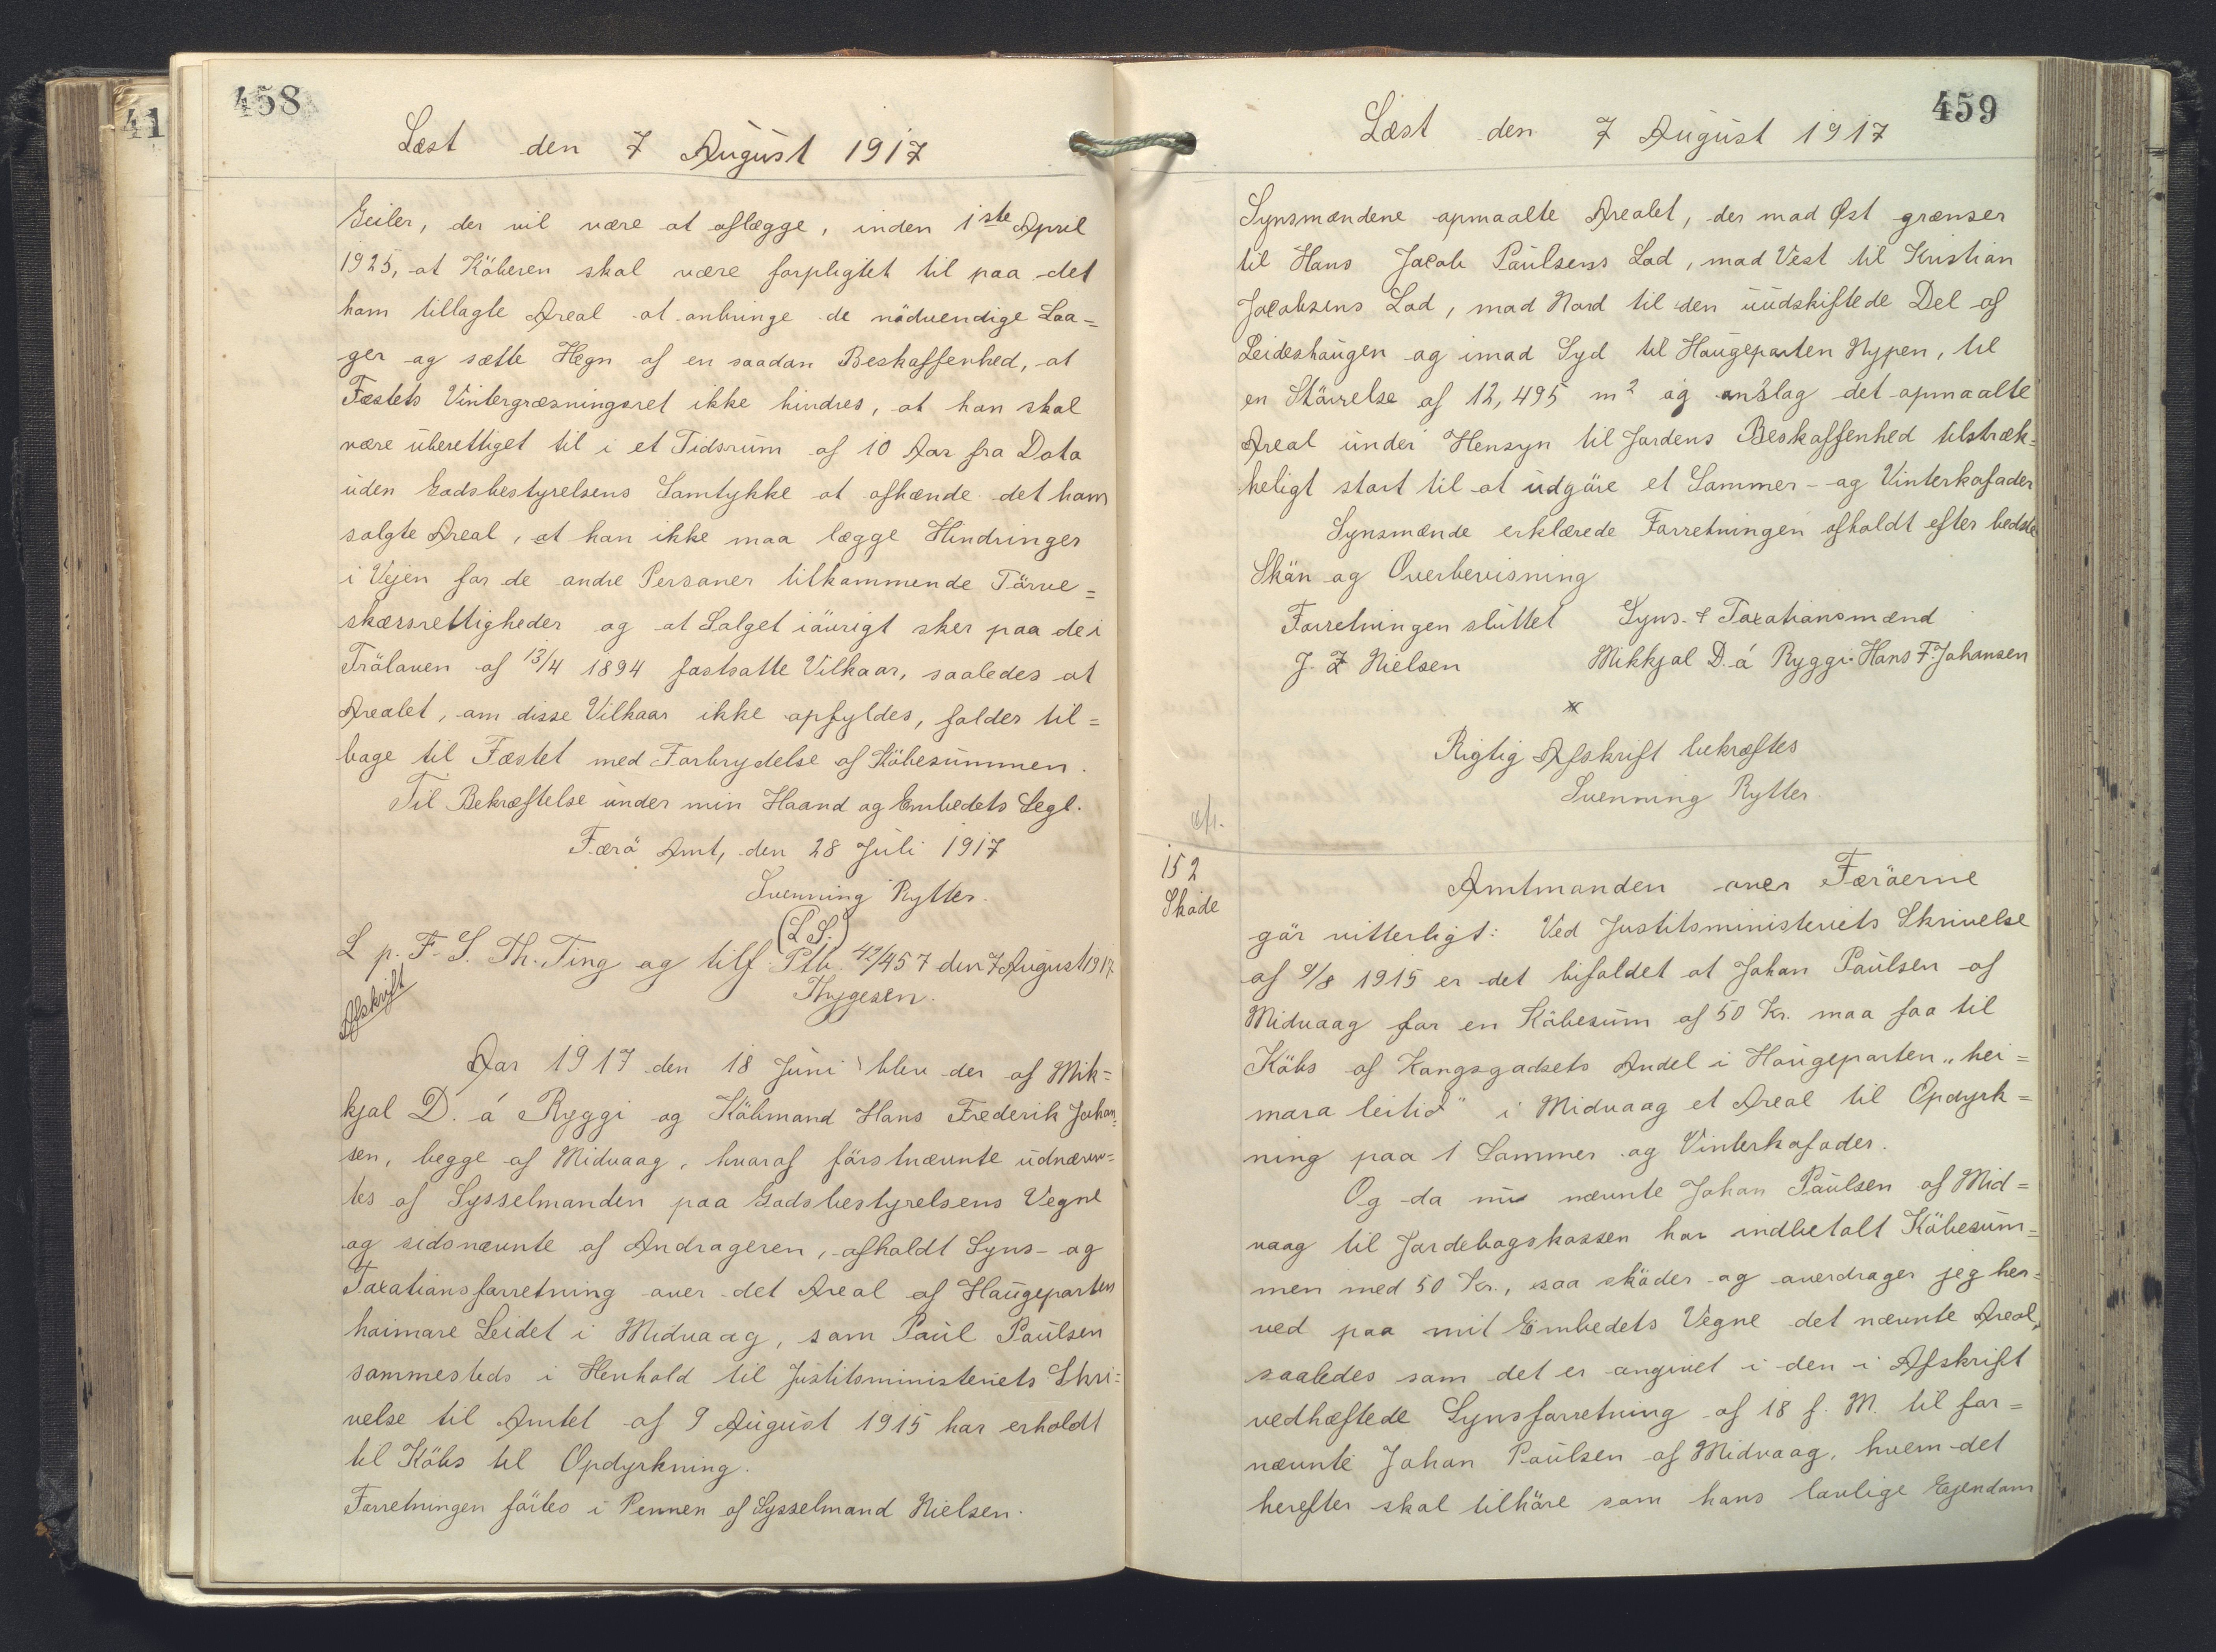 458
Læst den 7 August 1917
Geiler, der vil være at aflægge, inden 1ste April
1925, at Köberen skal være forpligtet til paa det
ham tillagte Areal at anbringe de nödvendige Laa=
ger og sætte Hegn af en saadan Beskaffenhed, at
Fæstets Vintergræsningsret ikke hindres, at han skal
være uberettiget til i et Tidsrum af 10 Aar fra Dato
uden Godsbestyrelsens Samtykke at afhænde det ham
solgte Areal, at han ikke maa lægge Hindringer
i Vejen for de andre Personer tilkommende Törve=
skærsrettigheder og at Salget iövrigt sker paa de i
Tröloven af 13/4 1894 fastsatte Vilkaar, saaledes at
Arealet, om disse Vilkaar ikke opfyldes, falder til=
bage til Fæstet med Forbrydelse af Köbesummen.
Til Bekræftelse under min Haand og Embedets Segl.
Færö Amt, den 28 Juli 1917
Svenning Rytter.
(L.S.)
L p. F. S. Th. Ting og tilf. Ptb. 42/457 den 7 August 1917.
Thygesen.
Afskrift
Aar 1917 den 18 Juni blev der af Mik=
kjal D. á Ryggi og Köbmand Hans Frederik Johan=
sen, begge af Midvaag, hvoraf förstnævnte udnævn=
tes af Sysselmanden paa Godsbestyrelsens Vegne
og sidsnævnte af Andrageren, afholdt Syns- og
Taxationsforretning over det Areal af Haugeparten
haimare Leidet i Midvaag, som Paul Paulsen
sammesteds i Henhold til Justitsministeriets Skri=
velse til Amtet af 9 August 1915 har erholdt
til Köbs til Opdyrkning.
Forretningen förtes i Pennen af Sysselmand Nielsen.
459
Læst den 7 August 1917
Synsmændene opmaalte Arealet, der mod Øst grænser
til Hans Jacob Paulsens Lod, mod Vest til Kristian
Jacobsens Lod, mod Nord til den uudskiftede Del af
Leideshaugen og imod Syd til Haugeparten Nypen, til
en Störrelse af 12,495 m2 og anslog det opmaalte
Areal under Hensyn til Jordens Beskaffenhed tilstræk=
keligt stort til at udgöre et Sommer- og Vinterkofoder
Synsmænde erklærede Forretningen afholdt efter bedste
Skön og Overbevisning
Forretningen sluttet Syns- & Taxationsmænd
J. Z Nielsen Mikkjal D. á Ryggi. Hans F. Johansen
Rigtig Afskrift bekræftes
Svenning Rytter.
152
Sköde
Amtmanden over Færöerne
gör vitterligt: Ved Justitsministeriets Skrivelse
af 9/8 1915 er det bifaldet at Johan Paulsen af
Midvaag for en Köbesum af 50 Kr. maa faa til
Köbs af Kongsgodsets Andel i Haugeparten "hei=
mara leitið" i Midvaag et Areal til Opdyrk=
ning paa 1 Sommer og Vinterkofoder.
Og da nu nævnte Johan Paulsen af Mid=
vaag til Jordebogskassen har indbetalt Köbesum=
men med 50 Kr., saa sköder og overdrager jeg her=
ved paa mit Embedets Vegne det nævnte Areal,
saaledes som det er angivet i den i Afskrift
vedhæftede Synsforretning af 18 f. M. til for=
nævnte Johan Paulsen af Midvaag, hvem det
herefter skal tilhöre som hans lovlige Ejendom